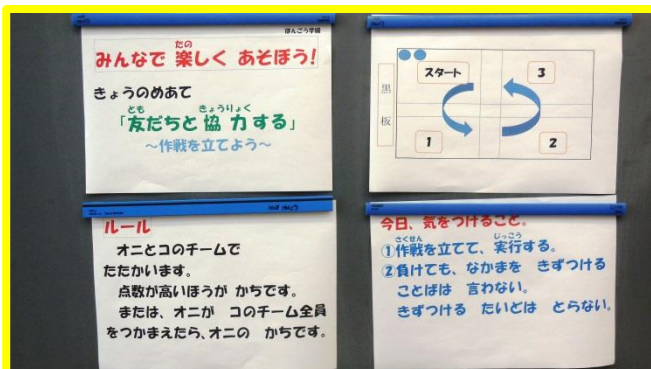 ほんごう学級
みんなで 楽しく あそぼう!
たの
きょうのめあて
「友だちと 協力する」
とも きょうりょく
～作戦を立てよう～
スタート
3
黒板
1
2
ルール
オニとコのチームで
たたかいます。
点数が高いほうが かちです。
または、オニが コのチーム全員
をつかまえたら、オニの かちです。
今日、気をつけること。
さくせん じっこう
①作戦を立てて、実行する。
②負けても、なかまを きずつける
ことばは 言わない。
きずつける たいどは とらない。